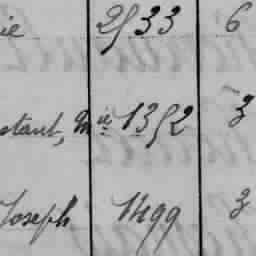 ie 2533 6
stant, Mie 1352 3
Joseph 1499 3